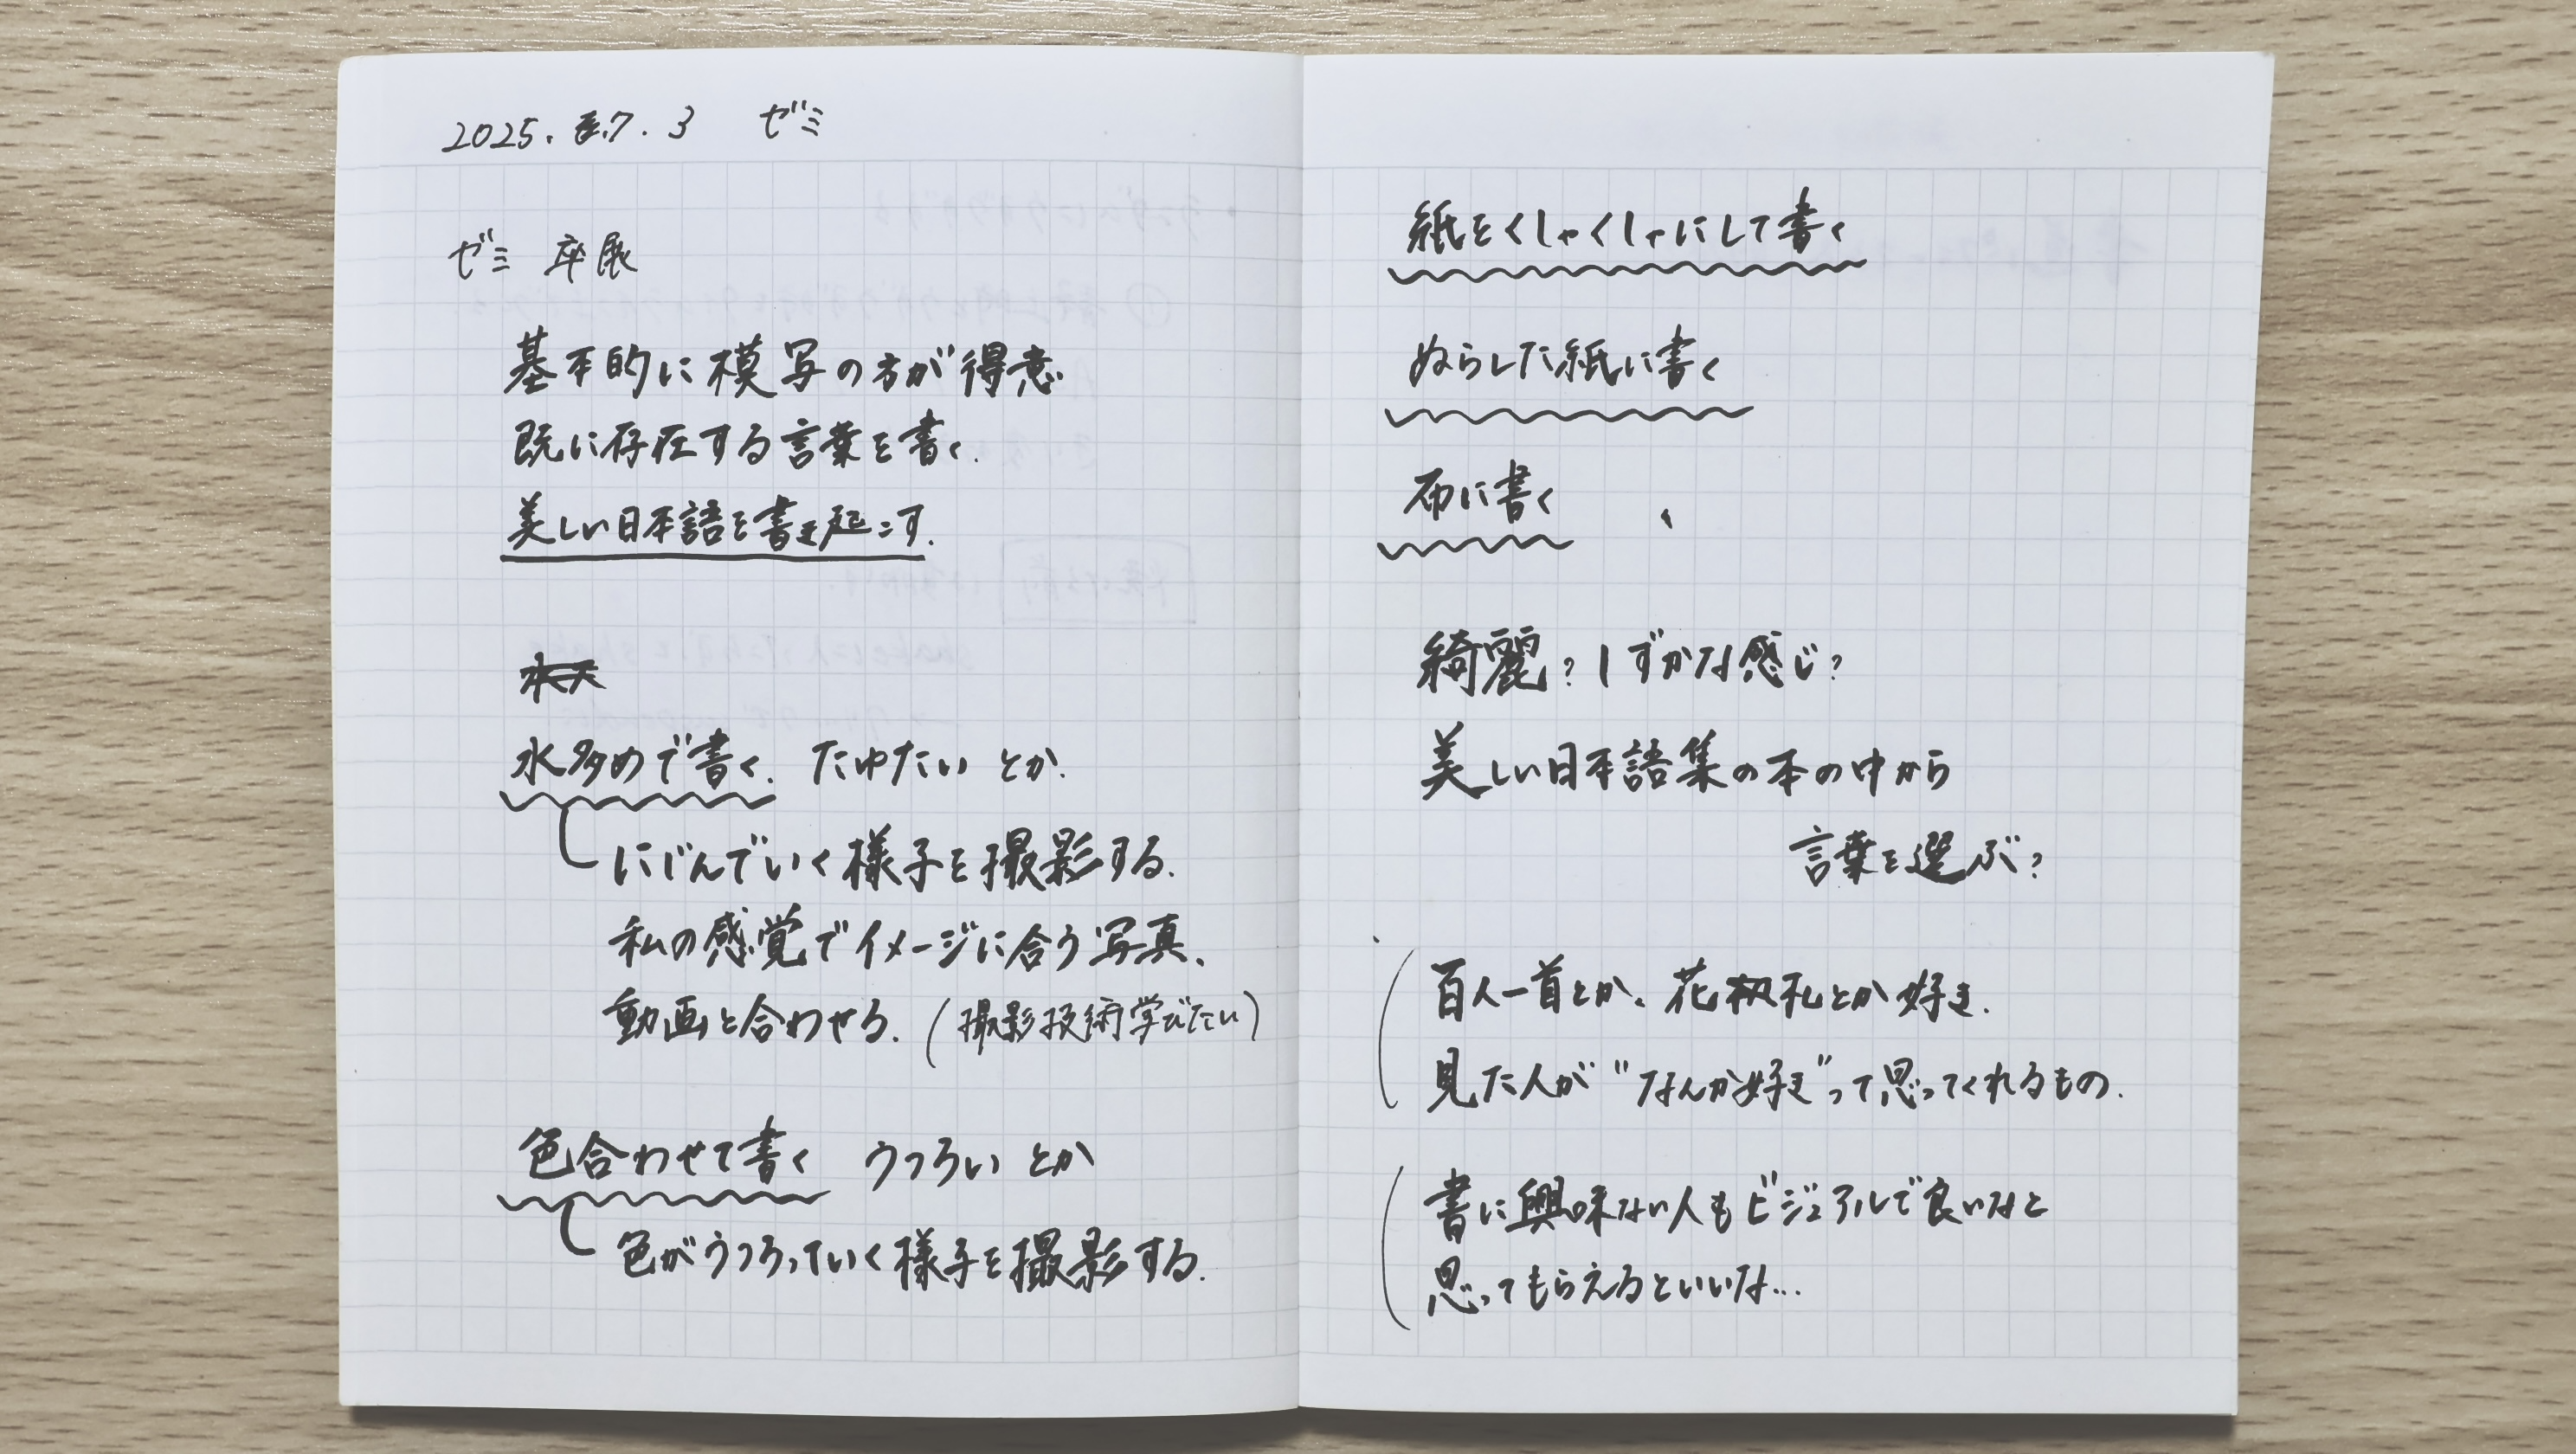 2025.7.3 ゼミ
ゼミ 卒展
基本的に模写の方が得意
既に存在する言葉を書く.
美しい日本語を書き起こす.
水多めで書く. たゆたい とか.
にじんでいく様子を撮影する.
私の感覚でイメージに合う写真、
動画と合わせる. (撮影技術学びたい)
色合わせて書く うつろい とか
色がうつろっていく様子を撮影する.
紙をくしゃくしゃにして書く
ぬらした紙に書く
布に書く
綺麗?しずかな感じ?
美しい日本語集の本の中から
言葉を選ぶ?
百人一首とか、花札とか好き.
見た人が“なんか好き”って思ってくれるもの.
書に興味ない人もビジュアルで良いなと
思ってもらえるといいな…